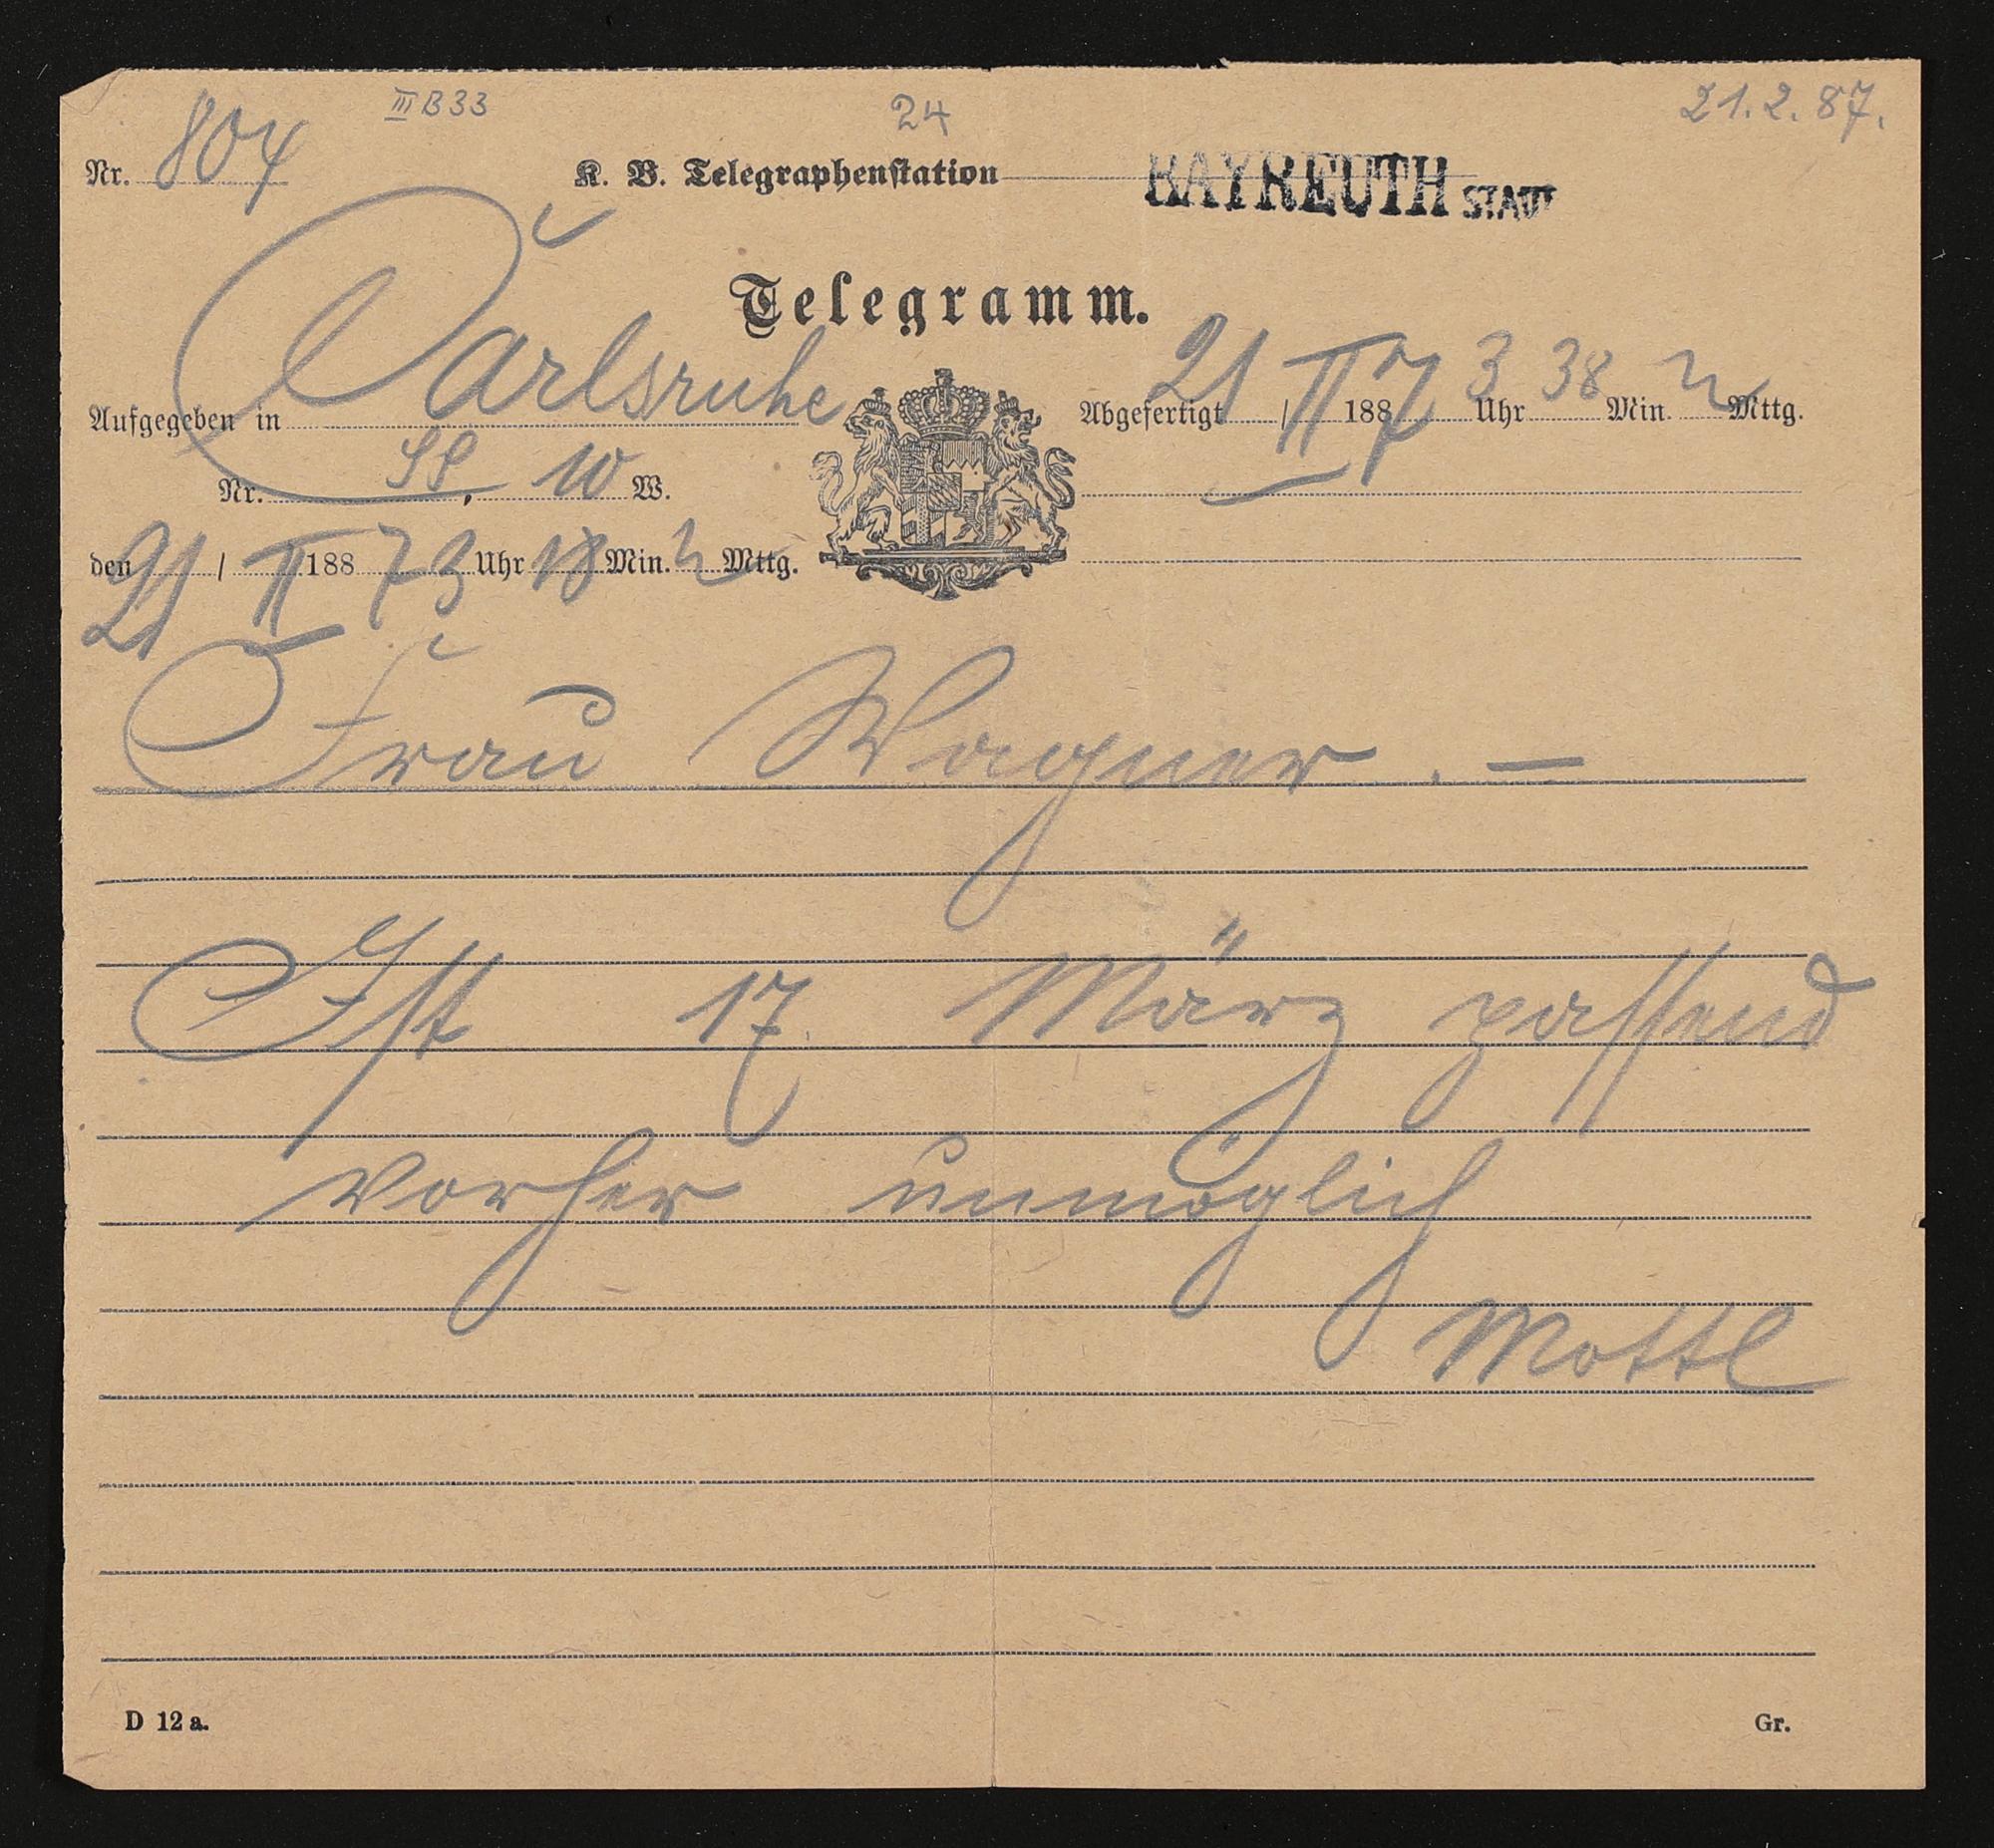 III B 33
24
21.2.87.
Nr. 804
K. B. Telegraphenstation BAYREUTH STADT
Telegramm.
Aufgegeben in Carlsruhe
Abgefertigt 21 / II 1887 3 Uhr 38 Min. Mttg.
Nr. , 10 W.
den 21 / II 1887 3 Uhr 18 Min. Mttg.
Frau Wagner. —
Ist 17. März passend
vorher unmöglich
Mottl
D 12 a.
Gr.